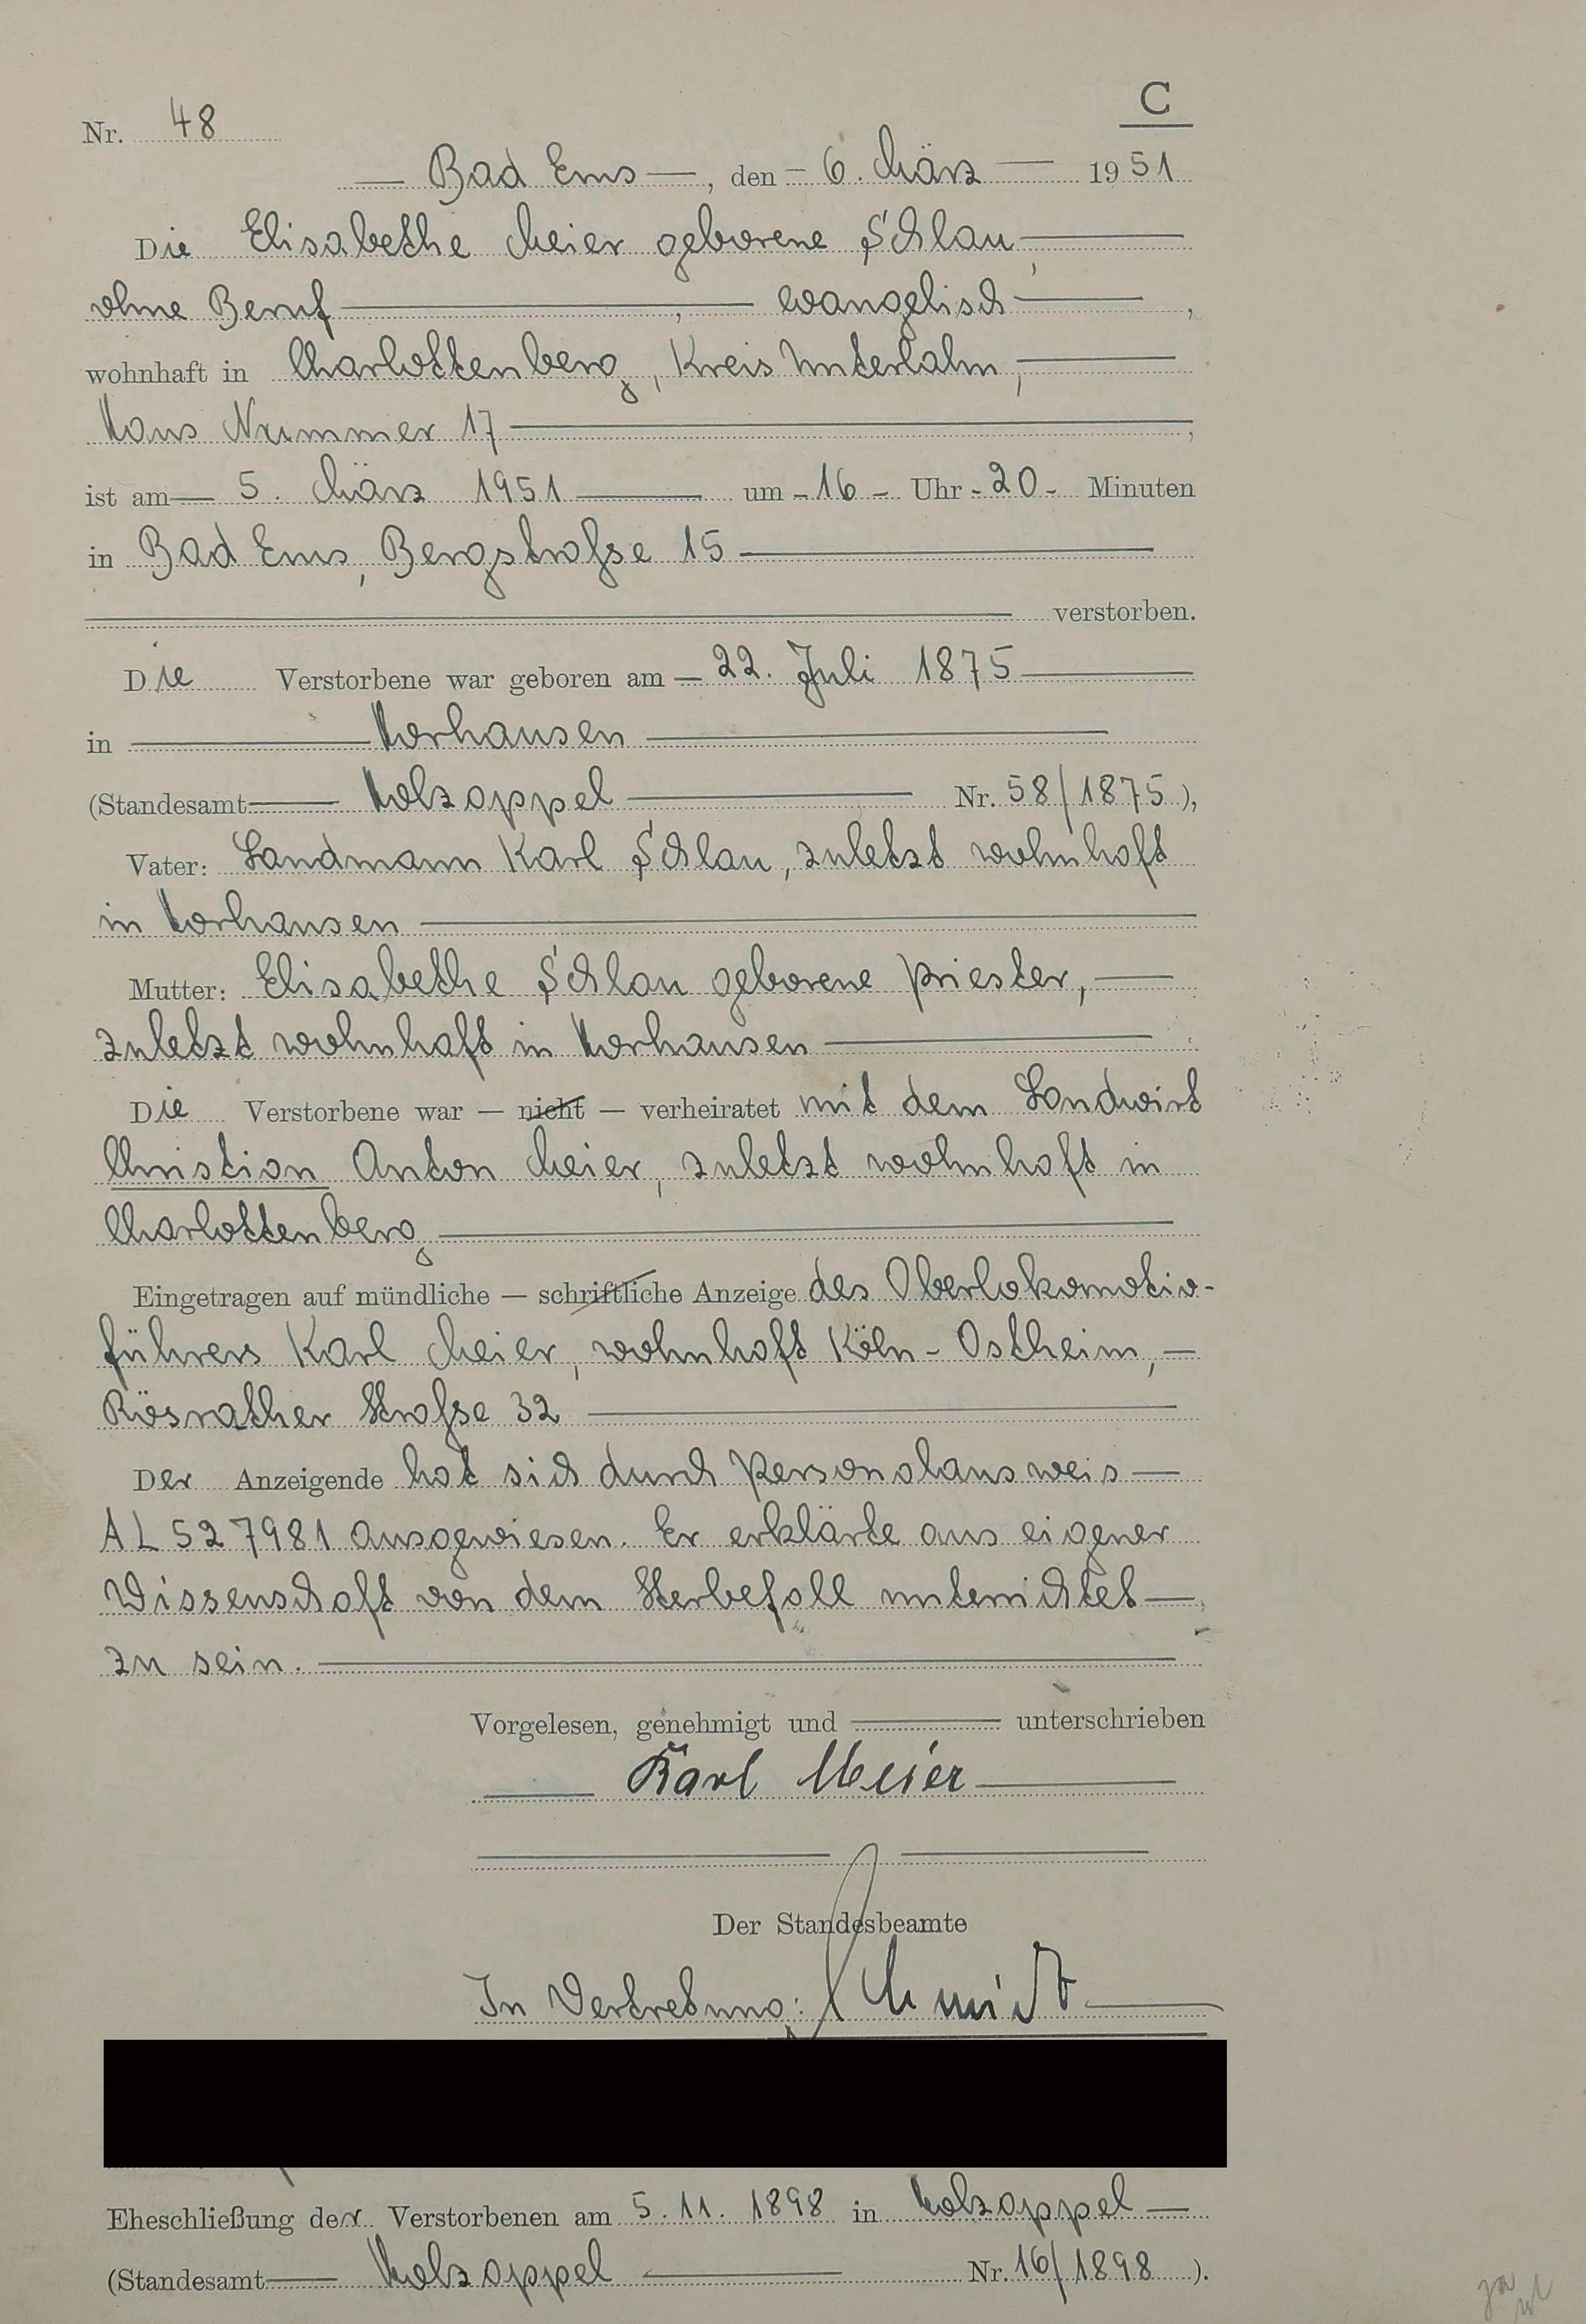 C
Nr. 48
— Bad Ems —, den – 6. März — 1951
Die Elisabethe Meier geborene Schlau,
ohne Beruf —, — evangelisch —,
wohnhaft in Charlottenberg, Kreis Unterlahn,
Haus Nummer 17 —,
ist am — 5. März 1951 — um – 16 – Uhr - 20 - Minuten
in Bad Ems, Bergstraße 15 —
— verstorben.
Die Verstorbene war geboren am — 22. Juli 1875 —
in — Horhausen —
(Standesamt — Holzappel — Nr. 58/1875),
Vater: Landmann Karl Schlau, zuletzt wohnhaft
in Horhausen —
Mutter: Elisabethe Schlau geborene Priester, —
zuletzt wohnhaft in Horhausen —
Die Verstorbene war — nicht — verheiratet mit dem Landwirt
Christian Anton Meier, zuletzt wohnhaft in
Charlottenberg —
Eingetragen auf mündliche — schriftliche Anzeige des Oberlokomotiv-
führers Karl Meier, wohnhaft Köln - Ostheim, —
Rösrather Straße 32 —
Der Anzeigende hat sich durch Personalausweis —
AL 527981 ausgewiesen. Er erklärte aus eigener
Wissenschaft von dem Sterbefall unterrichtet —
zu sein. —
Vorgelesen, genehmigt und — unterschrieben
— Karl Meier —
Der Standesbeamte
In Vertretung: Schmidt —
Eheschließung der Verstorbenen am 5.11.1898 in Holzappel —
(Standesamt — Holzappel — Nr. 16/1898).